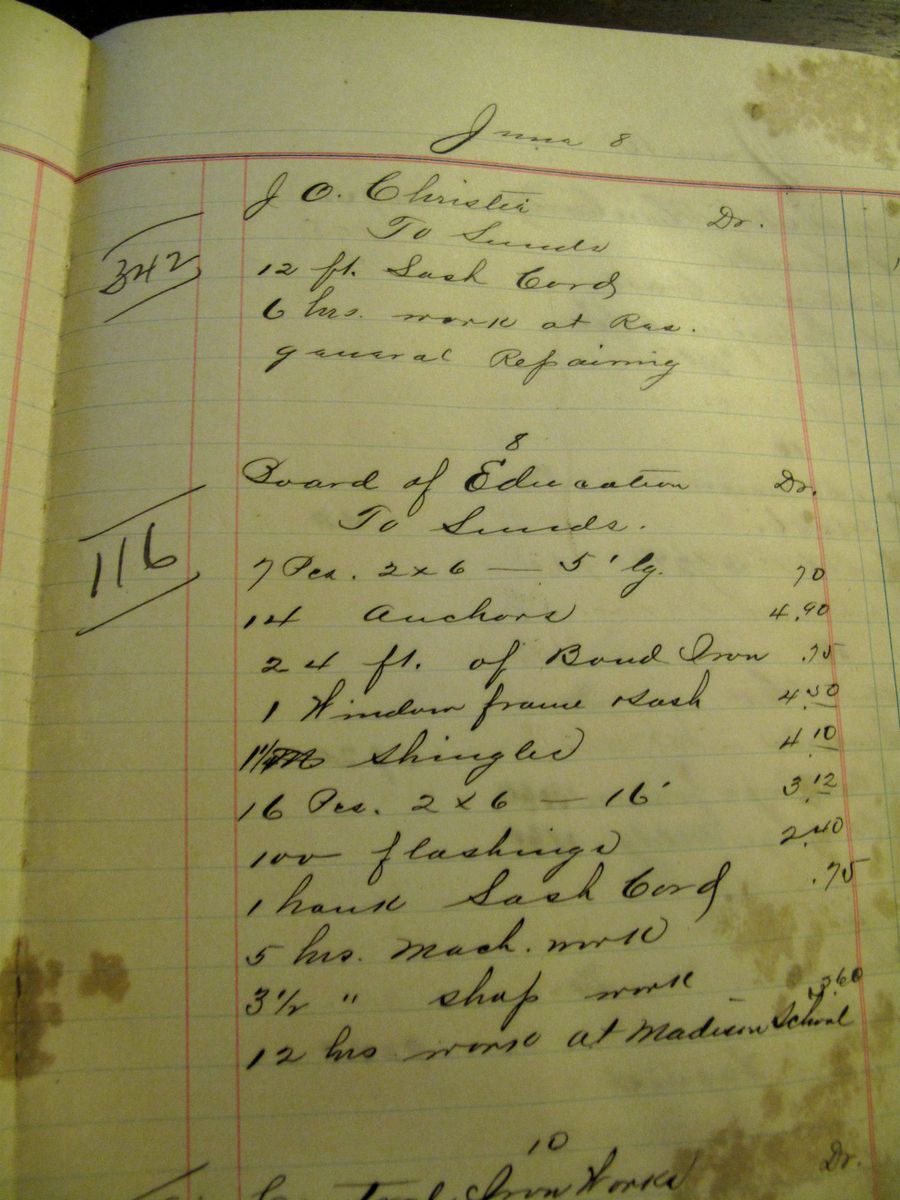 June 8
J O. Christie Dr.
To Sunds
342
12 ft. Sash Cord
6 hrs. work at Res.
general Repairing
8
Board of Education Dr.
To Sunds.
116
7 Pcs. 2x6 — 5' lg. 70
14 Anchors 4.90
24 ft. of Band Iron .75
1 Window frame & sash 4.50
Shingles 4.10
16 Pcs. 2x6 — 16' 3.12
100 flashings 2.40
1 hank Sash Cord .75
5 hrs. Mach. work
3 1/2 " shop work 3.60
12 hrs work at Madison School
10
Iron Works Dr.